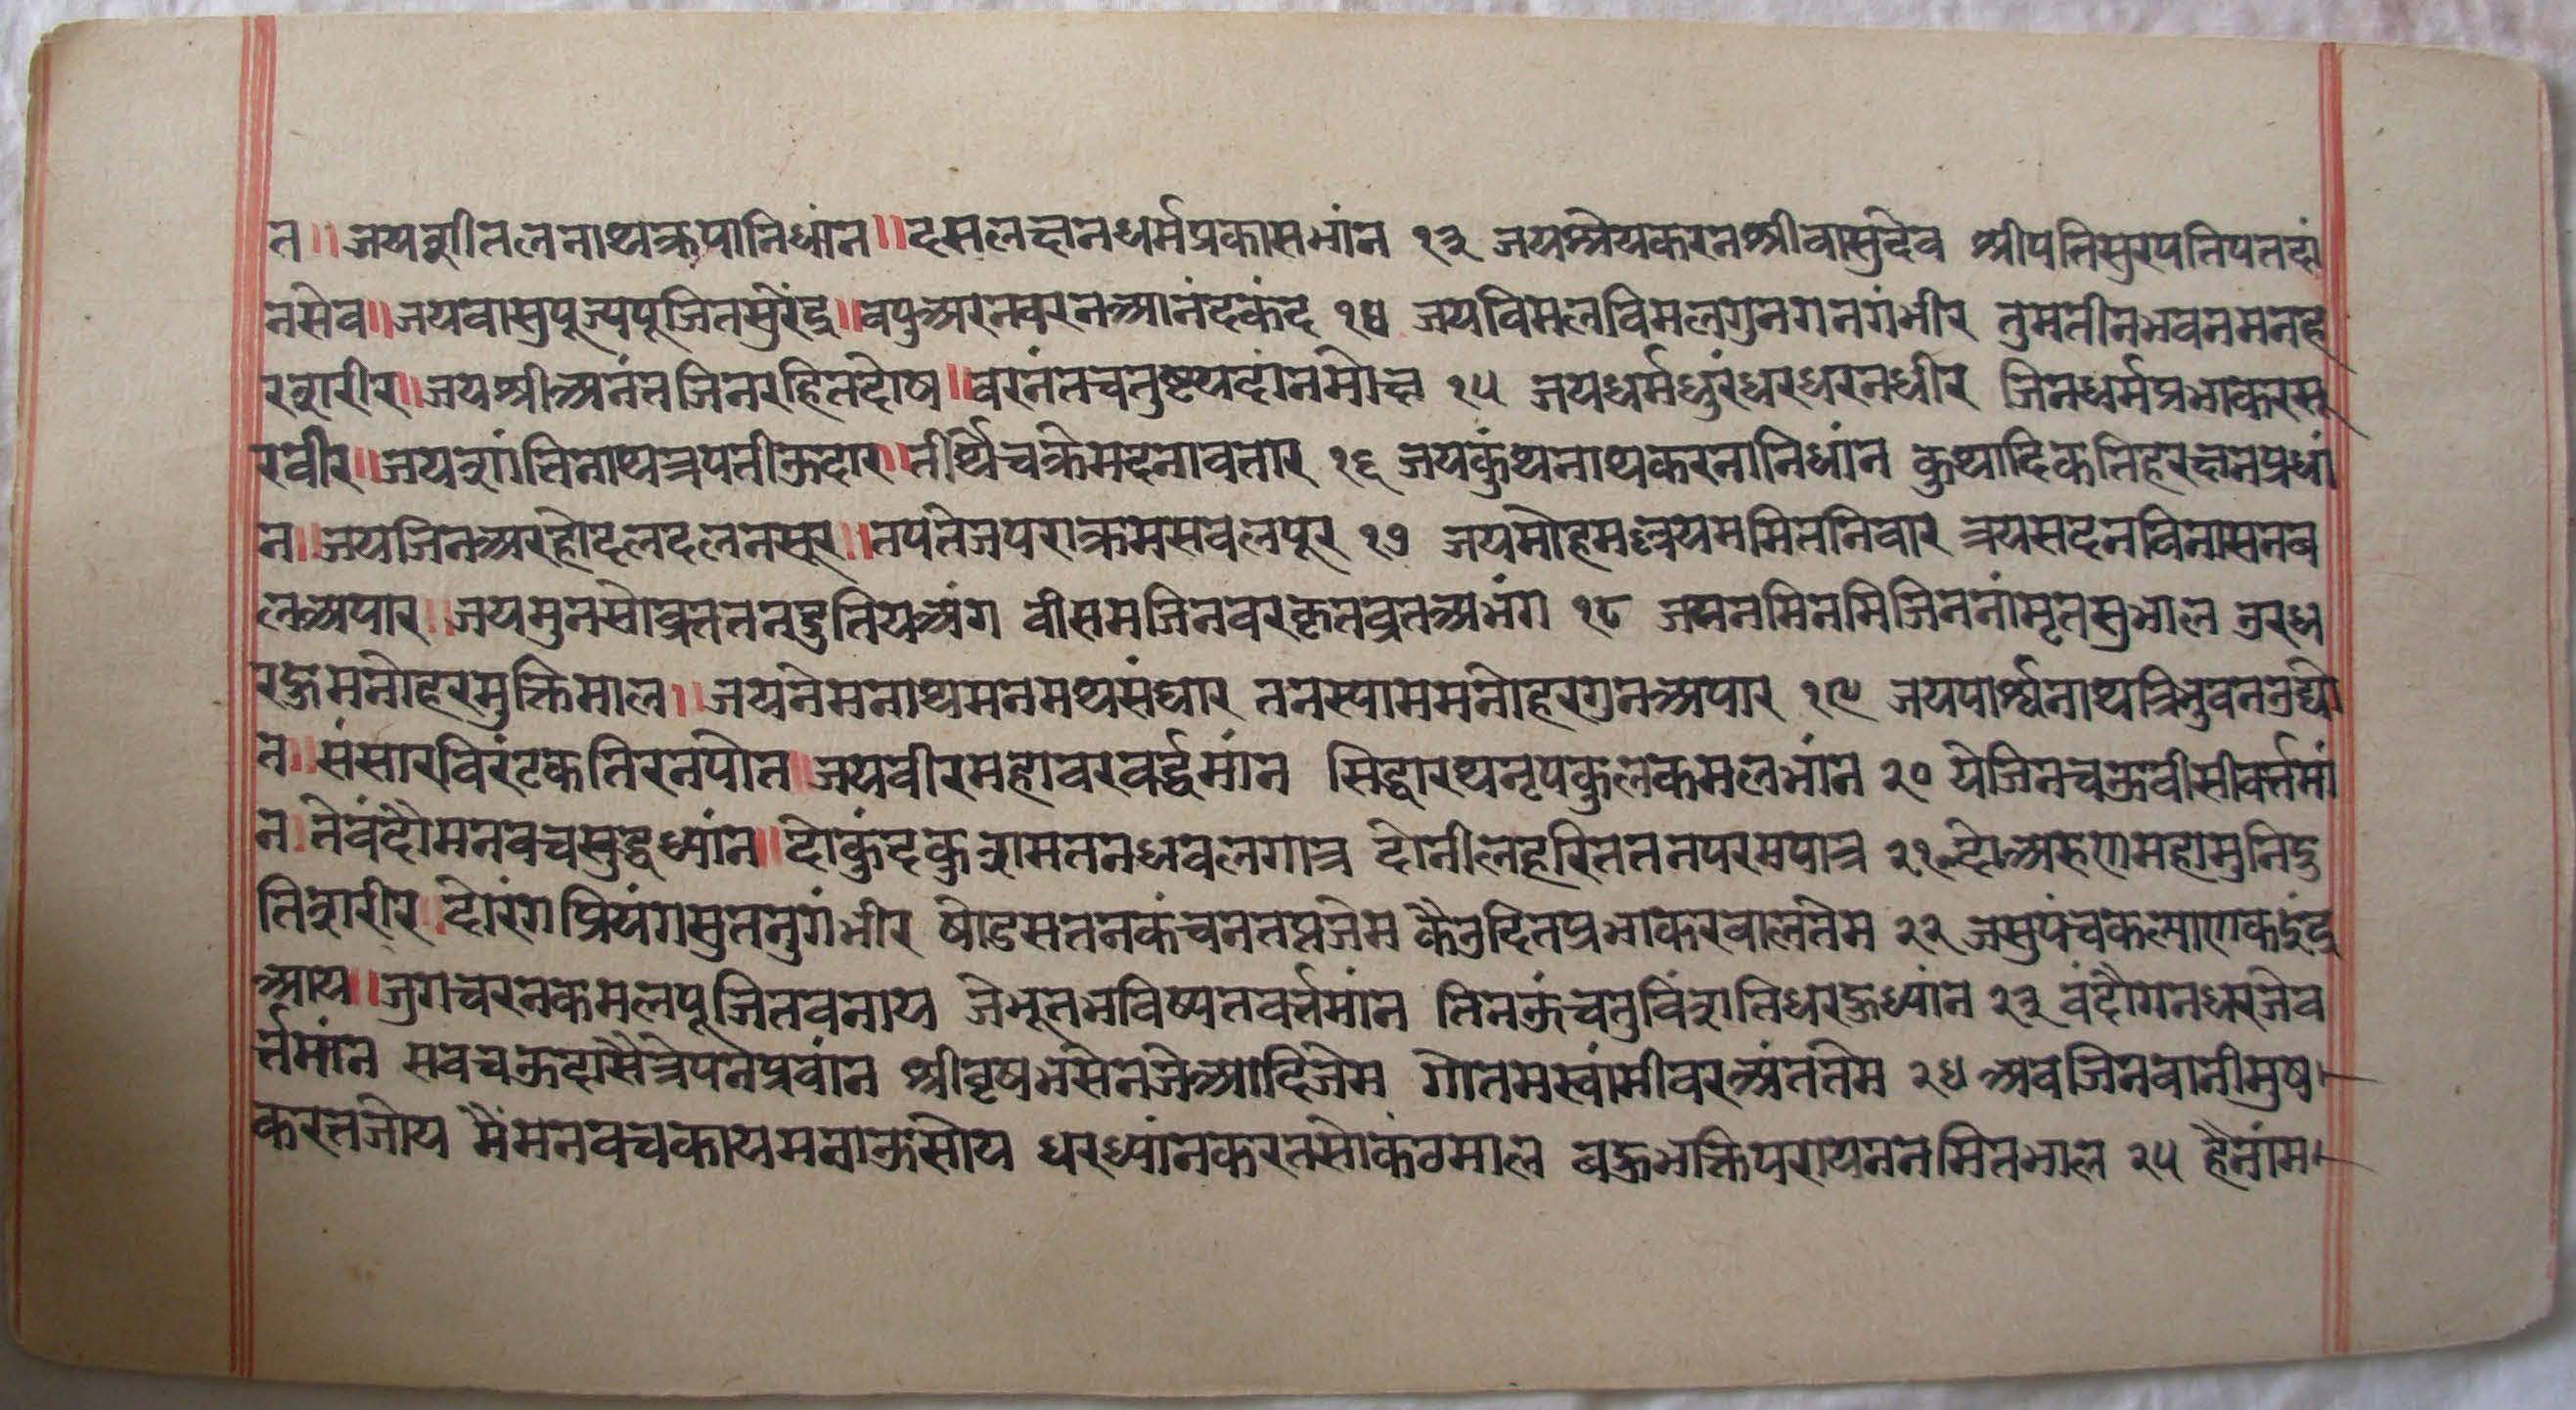 त ॥ जयशीतलनाथक्रपानिधांन ॥ दसलछनधर्मप्रकासभांन १३ जयश्रेयकरनश्रीवासुदेव श्रीपतिसुरपतिपतछां
नसेव ॥ जयवासुपूज्यपूजितसुरेंद्र ॥ वपुअरनवरनआनंदकंद १४ जयविमलविमलगुनगनगंभीर तुमतीनभवनमनह
रशरीर ॥ जयश्रीअनंतजिनरहितदोष ॥ वरनंतचतुष्टयदांनमोछ १५ जयधर्मधुरंधरधरनधीर जिनधर्मप्रभाकरसू
रवीर ॥ जयशांतिनाथत्रपतीऊदार ॥ तीर्थेचक्रेमदनावतार १६ जयकुंथनाथकरनानिधांन कुथादिकतिहरछनप्रधां
न ॥ जयजिनअरहोदलदलनसूर ॥ तपतेजपराक्रमसवलपूर १७ जयमोहमल्लयममितनिवार त्रयसदनविनासनब
लअपार ॥ जयमुनसोव्रततनदुतियअंग वीसमजिनवरकृतव्रतअभंग १८ जयनमिनमिजिननांमृतसुभाल उरध
रहुमनोहरमुक्तिमाल ॥ जयनेमनाथमनमथसंघार तनस्याममनोहरगुनअपार १९ जयपार्श्वनाथत्रिभुवनउद्यो
त ॥ संसारविरंटकतिरनपोत ॥ जयवीरमहावरवर्द्धमांन सिद्धारथनृपकुलकमलभांन २० येजिनचऊवीसीवर्त्तमां
न तेवंदौमनवचसुद्धध्यांन ॥ दोकुंदकुशमतनधवलगात्र दोनीलहरिततनपरमपात्र २१ दोअरुणमहामुनिदु
तिशरीर ॥ दोरंगप्रियंगसुतनुगंभीर षोडसतनकंचनतप्तजेम कैउदितप्रभाकरवालतेम २२ जसुपंचकल्याणकइंद्र
आय ॥ जुगचरनकमलपूजितवनाय जेभूतभविष्यतवर्त्तमांन तिनऊंचतुविंशतिधरहुध्यांन २३ वंदौगनधरजेव
र्त्तमांन सवचऊदासैत्रेपनप्रवांन श्रीवृषभसेनजेआदिजेम गोतमस्वांमीवरअंततेम २४ अवजिनवानीमुष
करतजोय मैंमनवचकायमनाऊंसोय धरध्यांनकरतसोकंठमाल बहुभक्तिपरायननमितभाल २५ हैनांम